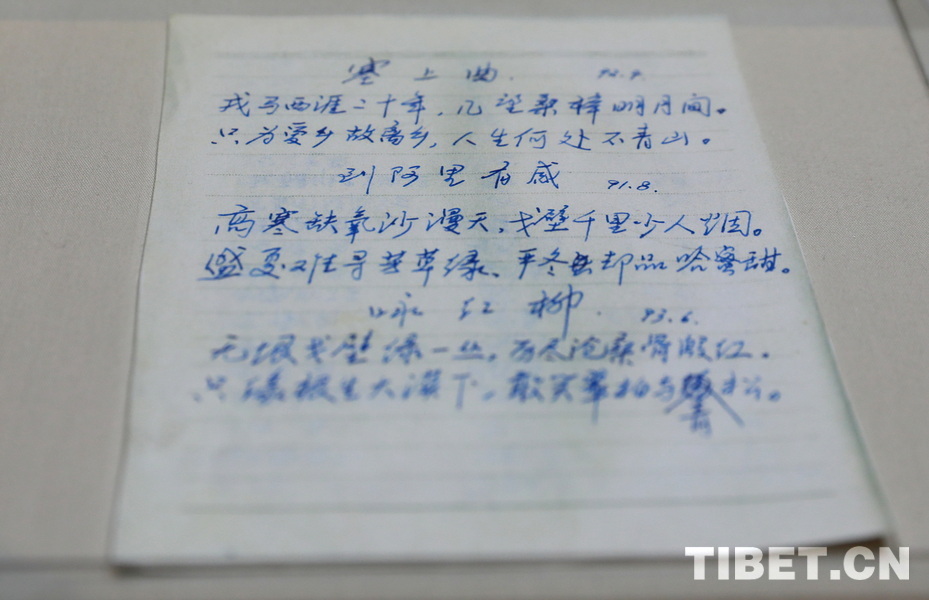 塞上曲. 92.9.
戎马西涯二十年,几望桑梓明月间。
只为爱乡故离乡,人生何处不青山。
到阿里有感 91.8.
高寒缺氧沙漫天,戈壁千里少人烟。
盛夏难寻芳草绿、严冬却品哈蜜甜。
咏红柳. 93.6.
无垠戈壁绿一丛,历尽沧桑骨愈红.
只缘根生大漠下,敢笑翠柏与青松。
TIBET.CN